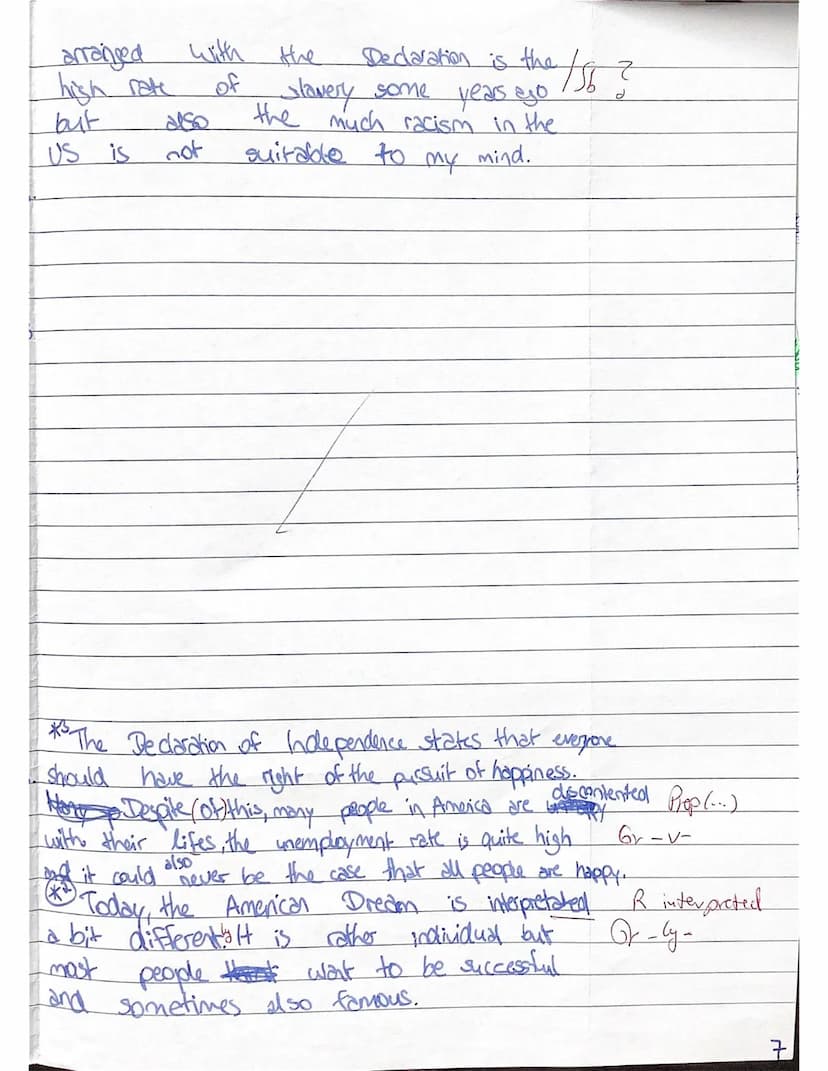 arranged with the Declaration is the /Sb ?
high rate of slavery some years ago
but also the much racism in the
US is not suitable to my mind.
*3 The Declaration of Independence states that everyone
should have the right of the pursuit of happiness.
Despite (of) this, many people in America are discontented Prep (...)
with their lifes, the unemployment rate is quite high Gr -v-
and it could also never be the case that all people are happy.
*2 Today, the American Dream is interpretated R interpreted
a bit different. It is rather individual but Gr -ly-
most people want to be successful
and sometimes also famous.
7